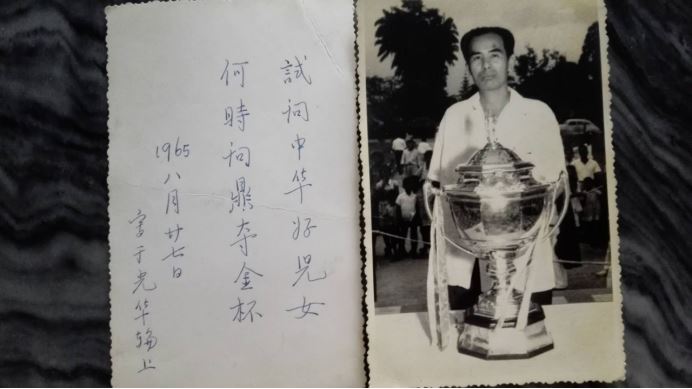 試问中华好児女
何時问鼎夺金杯
1965八月廿七日
寫于光华輪上